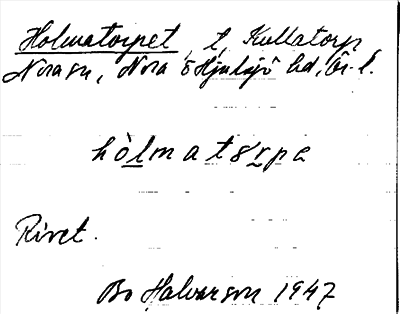 Holmatorpet, t, Kullatorp
Norasn, Nora o Hjulsjö hd, Ör. l.
hòlmatɷrpe
Rivet.
Bo Halvarson 1947